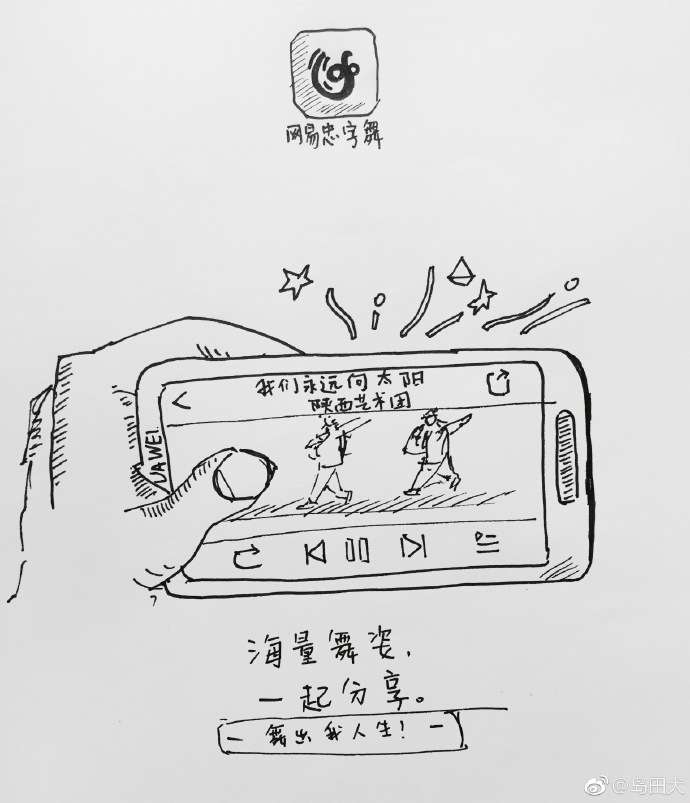 网易忠字舞
我们永远向太阳
陕西艺术团
UAWEI
海量舞姿，
一起分享。
- 舞出我人生! -
@岛田犬